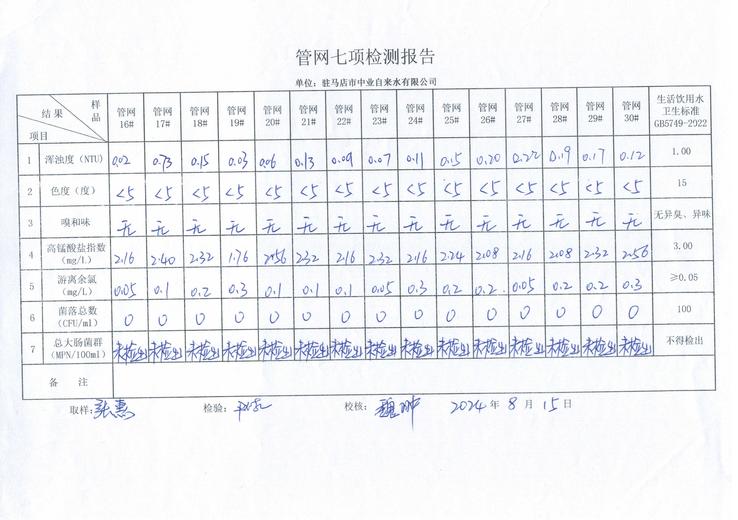 管网七项检测报告
单位：驻马店市中业自来水有限公司
结果 样品 项目 管网16# 管网17# 管网18# 管网19# 管网20# 管网21# 管网22# 管网23# 管网24# 管网25# 管网26# 管网27# 管网28# 管网29# 管网30# 生活饮用水卫生标准GB5749-2022
1 浑浊度（NTU） 0.02 0.73 0.15 0.03 0.06 0.13 0.09 0.07 0.11 0.15 0.20 0.22 0.19 0.17 0.12 1.00
2 色度（度） <5 <5 <5 <5 <5 <5 <5 <5 <5 <5 <5 <5 <5 <5 <5 15
3 嗅和味 无 无 无 无 无 无 无 无 无 无 无 无 无 无 无 无异臭、异味
4 高锰酸盐指数（mg/L） 2.16 2.40 2.32 1.76 2.56 2.32 2.16 2.32 2.16 2.24 2.08 2.16 2.08 2.32 2.56 3.00
5 游离余氯（mg/L） 0.05 0.1 0.2 0.3 0.1 0.1 0.1 0.05 0.3 0.2 0.2 0.05 0.2 0.2 0.3 ≥0.05
6 菌落总数（CFU/ml） 0 0 0 0 0 0 0 0 0 0 0 0 0 0 0 100
7 总大肠菌群（MPN/100ml） 未检出 未检出 未检出 未检出 未检出 未检出 未检出 未检出 未检出 未检出 未检出 未检出 未检出 未检出 未检出 不得检出
备 注
取样：张惠 检验： 校核： 2024 年 8 月 15 日